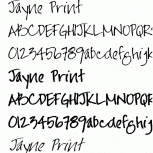 Jayne Print
ABCDEFGHIJKLMNOPQR
0123456789abcdefghijk
Jayne Print
ABCDEFGHIJKLMNOPQR
0123456789abcdefghijk
Jayne Print